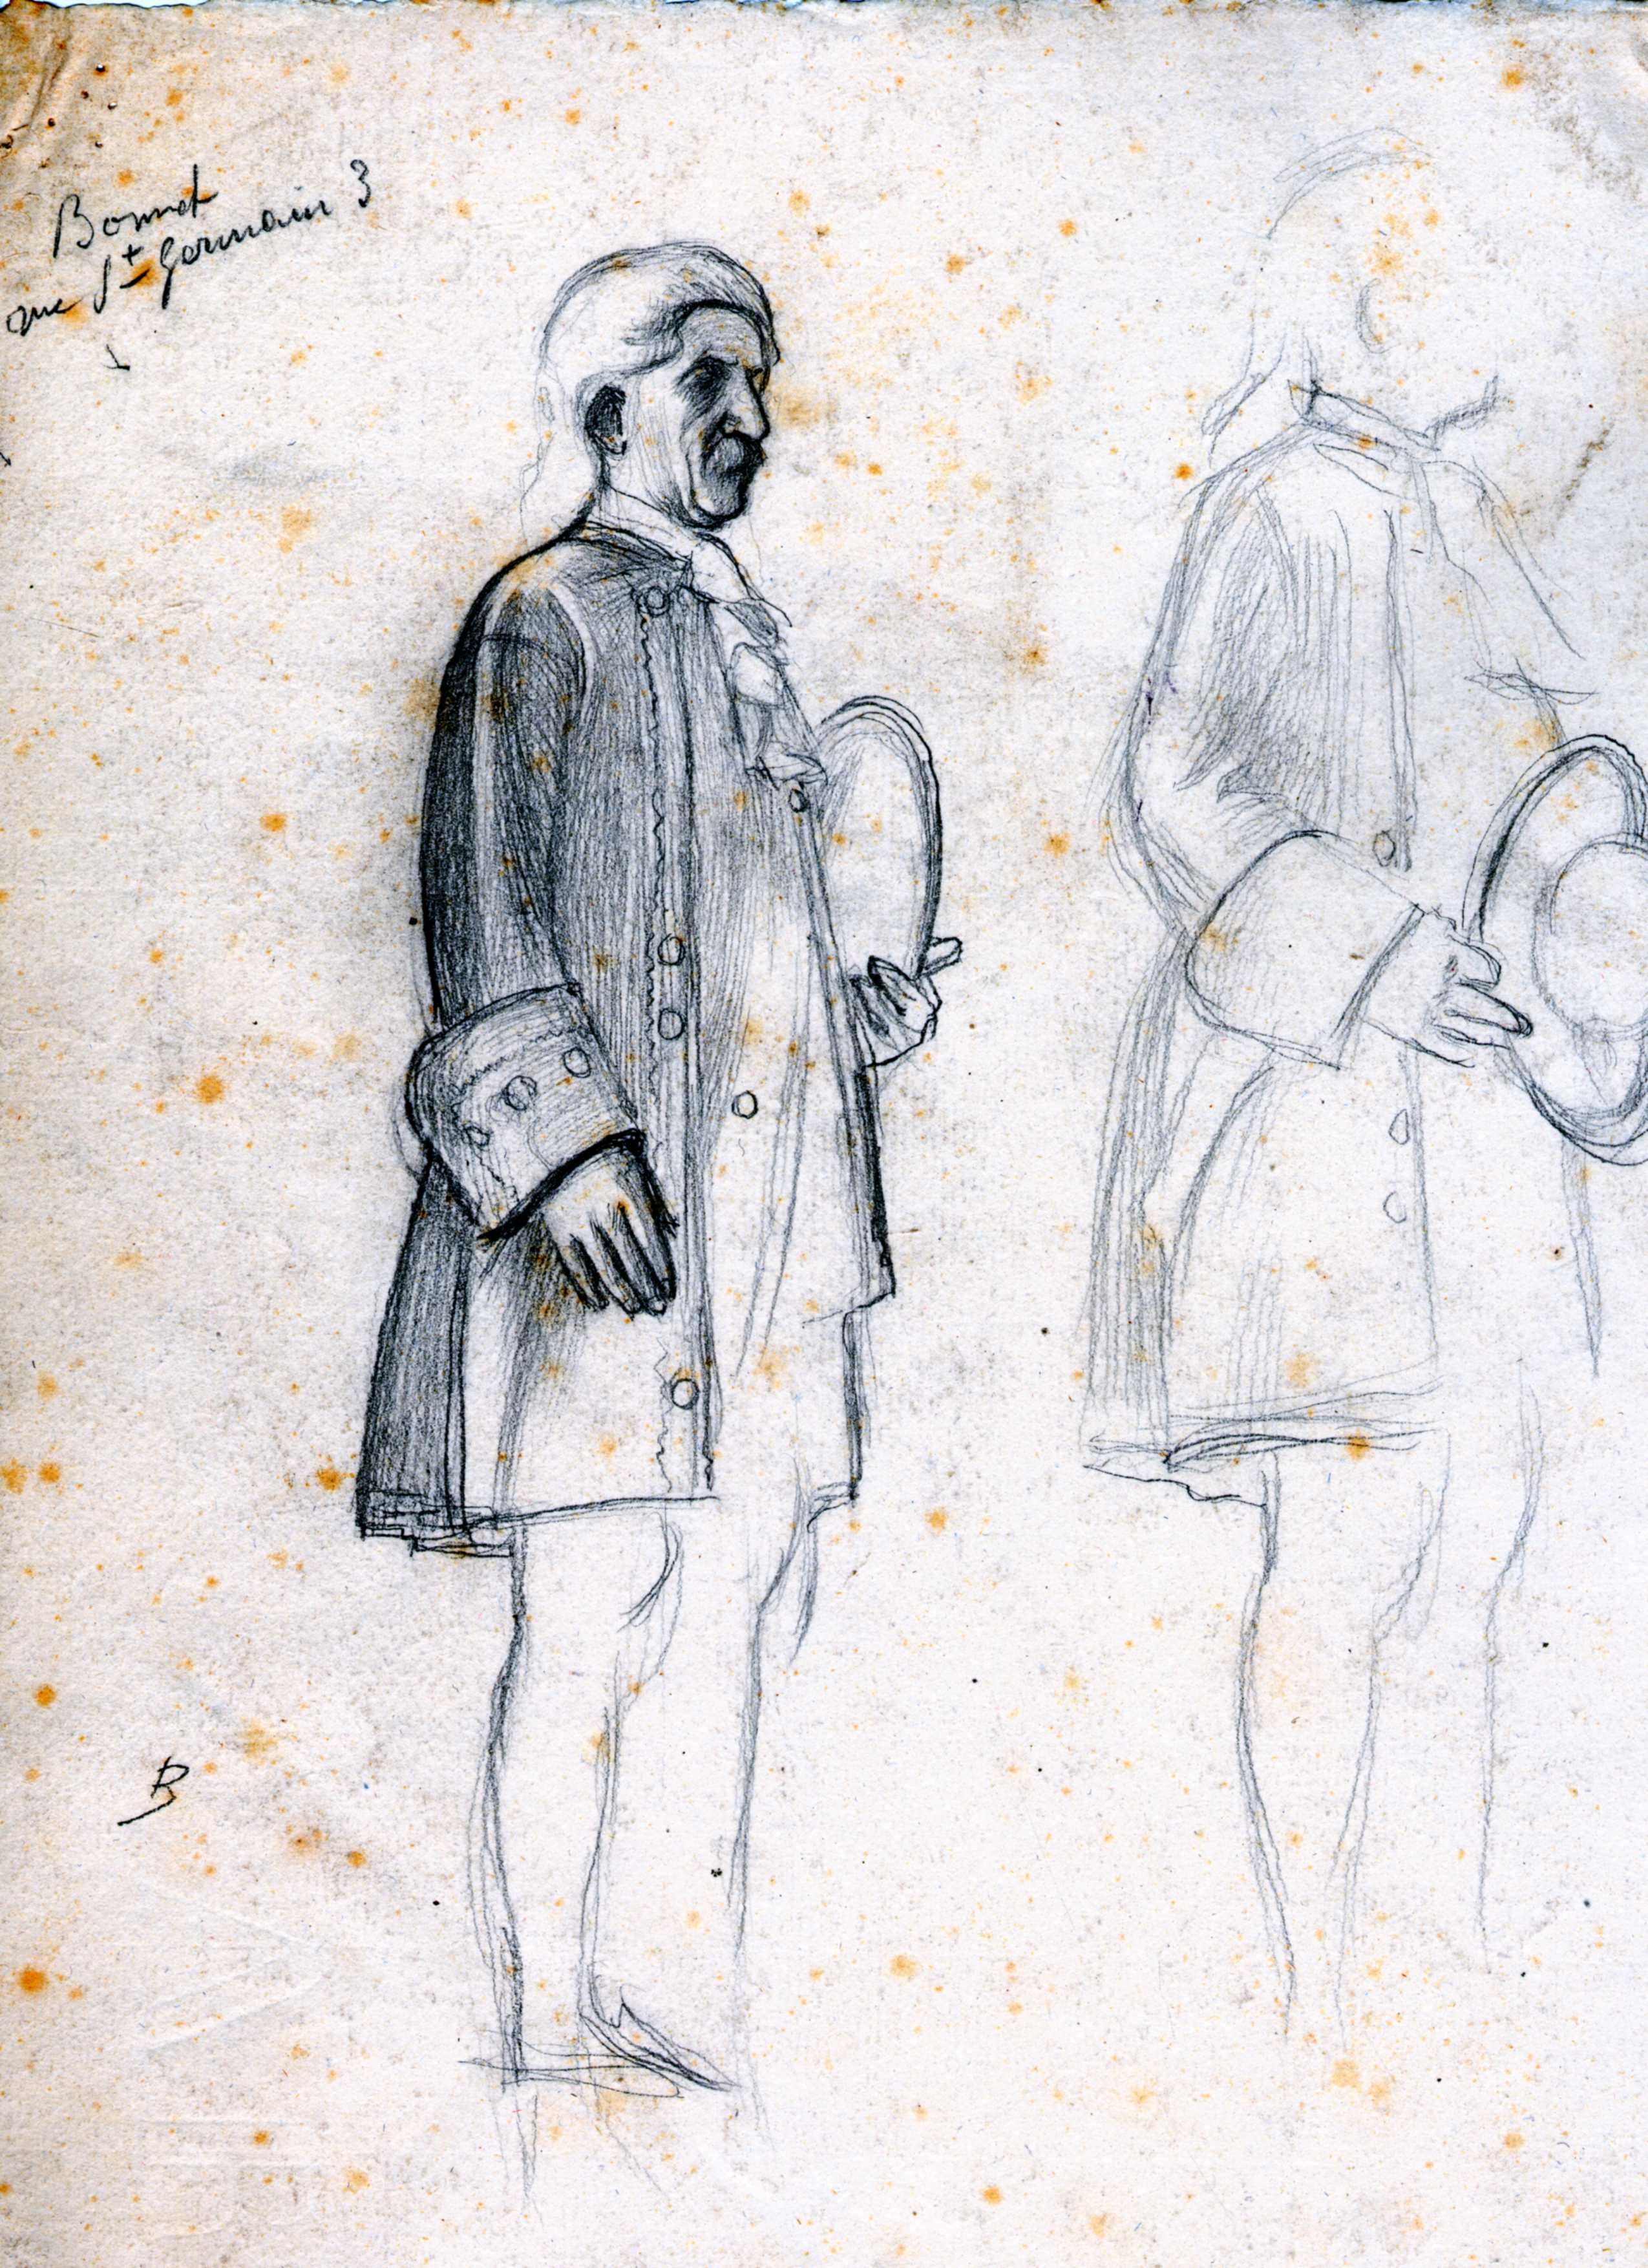 Bonnet
rue St Germain 3
B